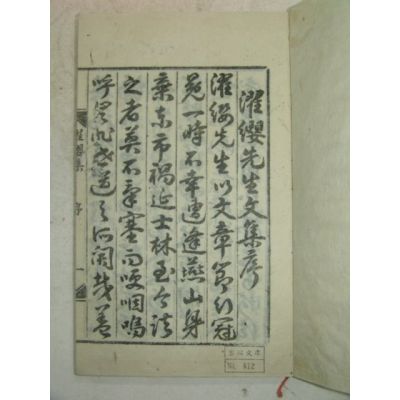 濯纓先生文集序
濯纓先生以文章節行冠
冕一時不幸遭逢燕山身
棄東市禍延士林至今談
之者莫不氣塞而哽咽嗚
呼豈非世道之所關哉蓋
濯纓集 序 一
文庫
412